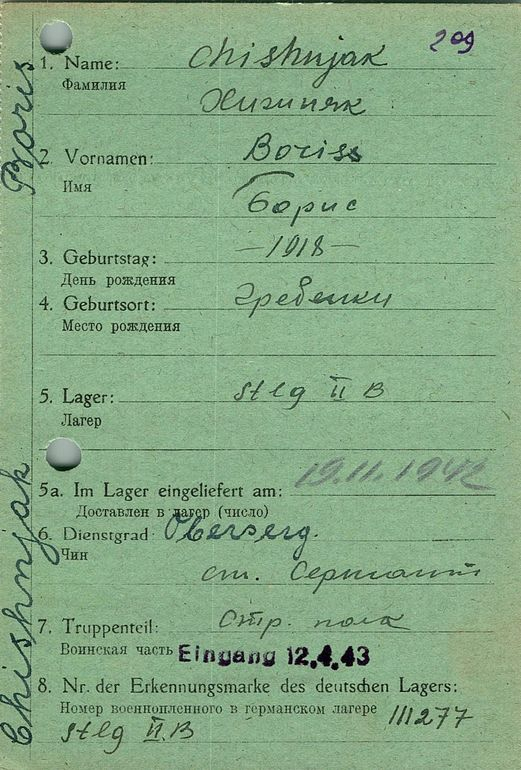 209
1. Name: Chishnjak
Фамилия
Хижняк
2. Vornamen: Boriss
Имя
Борис
3. Geburtstag: —1918—
День рождения
4. Geburtsort: Гребенки
Место рождения
5. Lager: Stlg II B
Лагер
5a. Im Lager eingeliefert am: 19.11.1942
Доставлен в лагер (число)
6. Dienstgrad Oberserg.
Чин
ст. Сержант
7. Truppenteil: Стр. полк
Воинская часть Eingang 12.4.43
8. Nr. der Erkennungsmarke des deutschen Lagers:
Номер военнопленного в германском лагере 111277
Stlg II.B
Chishnjak Boris